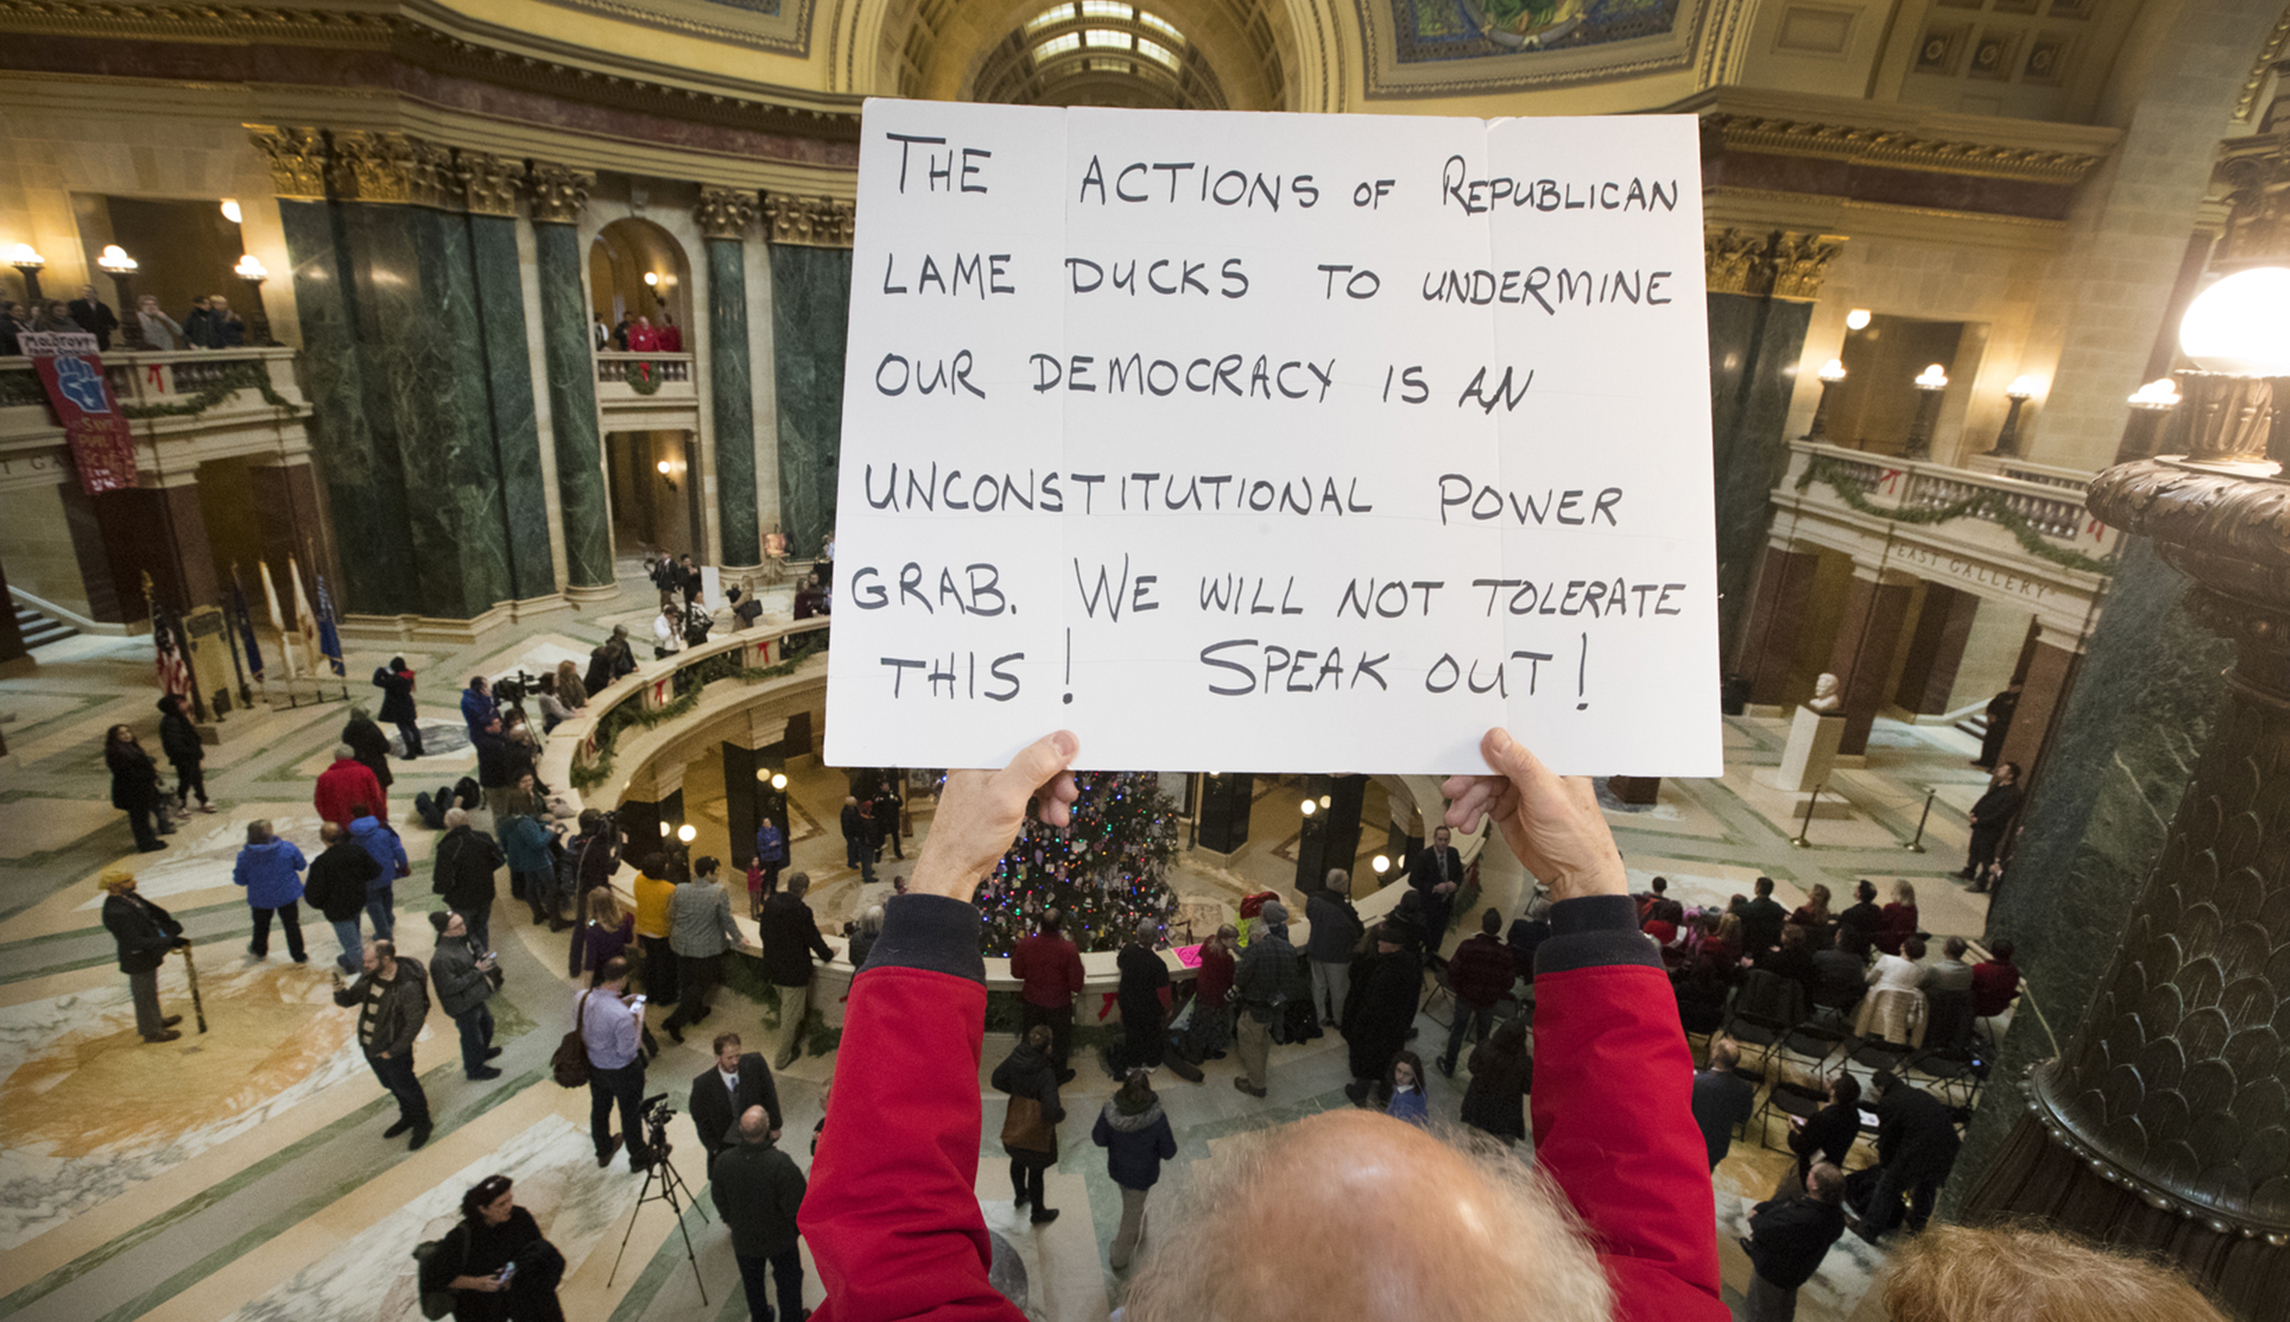 THE ACTIONS OF REPUBLICAN
LAME DUCKS TO UNDERMINE
OUR DEMOCRACY IS AN
UNCONSTITUTIONAL POWER
GRAB. WE WILL NOT TOLERATE
THIS! SPEAK OUT!
"MOLOTOV"
SAVE
EAST GALLERY